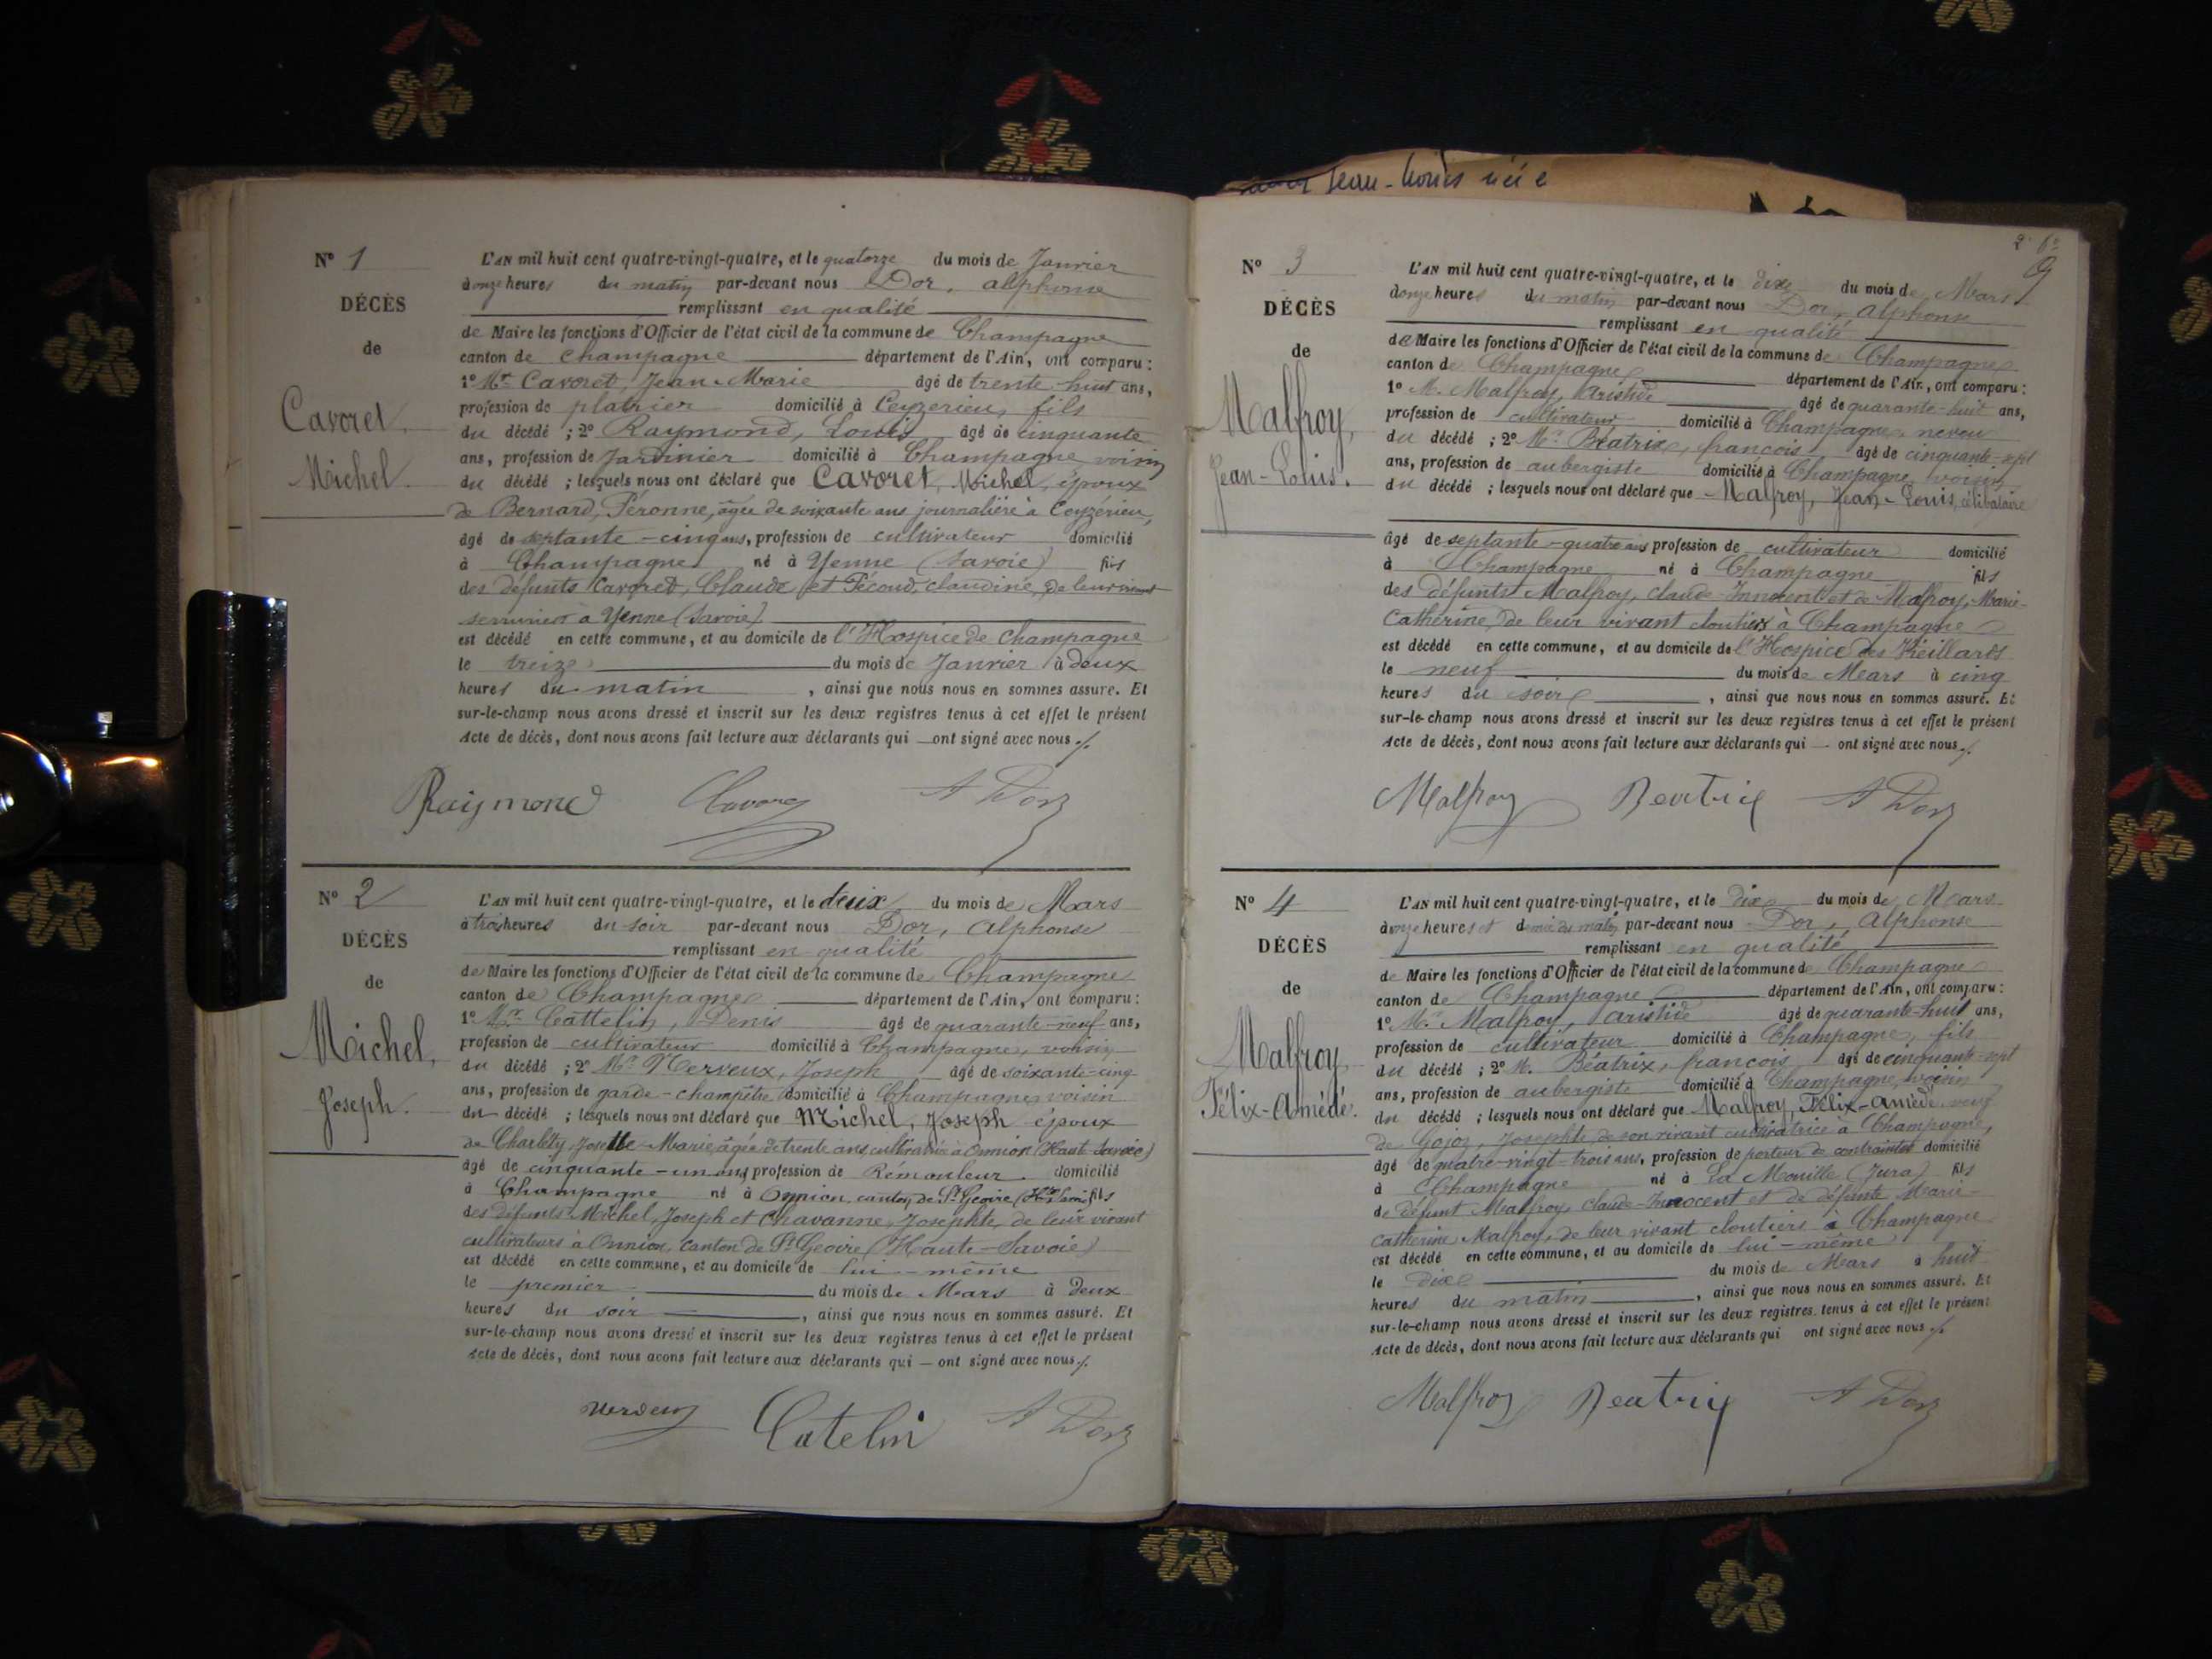 Jean-Louis née
N° 1
DÉCÈS
de
Cavoret,
Michel.
L'AN mil huit cent quatre-vingt-quatre, et le quatorze du mois de Janvier
à onze heures du matin par-devant nous Dor, alphonse
remplissant en qualité
de Maire les fonctions d'Officier de l'état civil de la commune de Champagne
canton de Champagne département de l'Ain, ont comparu :
1° Mr Cavoret, Jean-Marie âgé de trente-huit ans,
profession de platrier domicilié à Ceyzerieu, fils
du décédé ; 2° Raymond, Louis âgé de cinquante
ans, profession de Jardinier domicilié à Champagne voisin
du décédé ; lesquels nous ont déclaré que Cavoret, Michel, époux
de Bernard, Péronne, agée de soixante ans journalière à Ceyzérieu,
âgé de septante-cinq ans, profession de cultivateur domicilié
à Champagne né à Yenne (Savoie) fils
des défunts Cavoret, Claude et Fécoud, claudine, de leur vivant
serruriers à Yenne (Savoie)
est décédé en cette commune, et au domicile de l'Hospice de Champagne
le treize du mois de Janvier à deux
heures du matin, ainsi que nous nous en sommes assuré. Et
sur-le-champ nous avons dressé et inscrit sur les deux registres tenus à cet effet le présent
Acte de décès, dont nous avons fait lecture aux déclarants qui ont signé avec nous./.
Raymond Cavoret A Dor
N° 2
DÉCÈS
de
Michel,
Joseph.
L'AN mil huit cent quatre-vingt-quatre, et le deux du mois de Mars
à trois heures du soir par-devant nous Dor, Alphonse
remplissant en qualité
de Maire les fonctions d'Officier de l'état civil de la commune de Champagne
canton de Champagne département de l'Ain, ont comparu :
1° Mr Cattelin, Denis âgé de quarante-neuf ans,
profession de cultivateur domicilié à Champagne, voisin
du décédé ; 2° Mr Verveux, Joseph âgé de soixante-cinq
ans, profession de garde-champêtre domicilié à Champagne voisin
du décédé ; lesquels nous ont déclaré que Michel, Joseph époux
de Charléty Josette-Marie, agée de trente ans cultivatrice à Onnion (Haute Savoie)
âgé de cinquante-un ans, profession de Rémouleur domicilié
à Champagne né à Onnion, canton de St Geoire (Hte Savoie) fils
des défunts Michel, Joseph et Chavanne, Josephte, de leur vivant
cultivateurs à Onnion, canton de St Geoire (Haute-Savoie)
est décédé en cette commune, et au domicile de lui-même
le premier du mois de Mars à deux
heures du soir, ainsi que nous nous en sommes assuré. Et
sur-le-champ nous avons dressé et inscrit sur les deux registres tenus à cet effet le présent
Acte de décès, dont nous avons fait lecture aux déclarants qui — ont signé avec nous./.
Catelin A Dor
9
N° 3
DÉCÈS
de
Malfroy,
Jean-Louis.
L'AN mil huit cent quatre-vingt-quatre, et le dix du mois de Mars
à onze heures du matin par-devant nous Dor, alphonse
remplissant en qualité
de Maire les fonctions d'Officier de l'état civil de la commune de Champagne
canton de Champagne département de l'Ain, ont comparu :
1° M. Malfroy, Aristide âgé de quarante-huit ans,
profession de cultivateur domicilié à Champagne, neveu
du décédé ; 2° Mr Béatrix, françois âgé de cinquante-sept
ans, profession de aubergiste domicilié à Champagne, voisin
du décédé ; lesquels nous ont déclaré que Malfroy, Jean-Louis, célibataire
âgé de septante-quatre ans profession de cultivateur domicilié
à Champagne né à Champagne fils
des défunts Malfroy, claude-Innocent et de Malfroy, Marie-
Catherine, de leur vivant cloutiers à Champagne
est décédé en cette commune, et au domicile de l'Hospice des Vieillards
le neuf du mois de Mars à cinq
heures du soir, ainsi que nous nous en sommes assuré. Et
sur-le-champ nous avons dressé et inscrit sur les deux registres tenus à cet effet le présent
Acte de décès, dont nous avons fait lecture aux déclarants qui — ont signé avec nous./.
Malfroy Beatrix A Dor
N° 4
DÉCÈS
de
Malfroy
Félix-Amédé.
L'AN mil huit cent quatre-vingt-quatre, et le Dix du mois de Mars
à onze heures et demie du matin par-devant nous Dor, Alphonse
remplissant en qualité
de Maire les fonctions d'Officier de l'état civil de la commune de Champagne
canton de Champagne département de l'Ain, ont comparu :
1° Mr Malfroy, Aristide âgé de quarante-huit ans,
profession de cultivateur domicilié à Champagne, fils
du décédé ; 2° M. Béatrix, françois âgé de cinquante-sept
ans, profession de aubergiste domicilié à Champagne, voisin
du décédé ; lesquels nous ont déclaré que Malfroy, Félix-Amédé veuf
de Gojoz, Josephte, de son vivant cultivatrice à Champagne,
âgé de quatre-vingt-trois ans, profession de porteur de contraintes domicilié
à Champagne né à La Mouille (Jura) fils
de défunt Malfroy, claude-Innocent et de défunte Marie-
Catherine Malfroy, de leur vivant cloutiers à Champagne
est décédé en cette commune, et au domicile de lui-même
le Dix du mois de Mars à huit
heures du matin, ainsi que nous nous en sommes assuré. Et
sur-le-champ nous avons dressé et inscrit sur les deux registres tenus à cet effet le présent
Acte de décès, dont nous avons fait lecture aux déclarants qui ont signé avec nous./.
Malfroy Beatrix A Dor